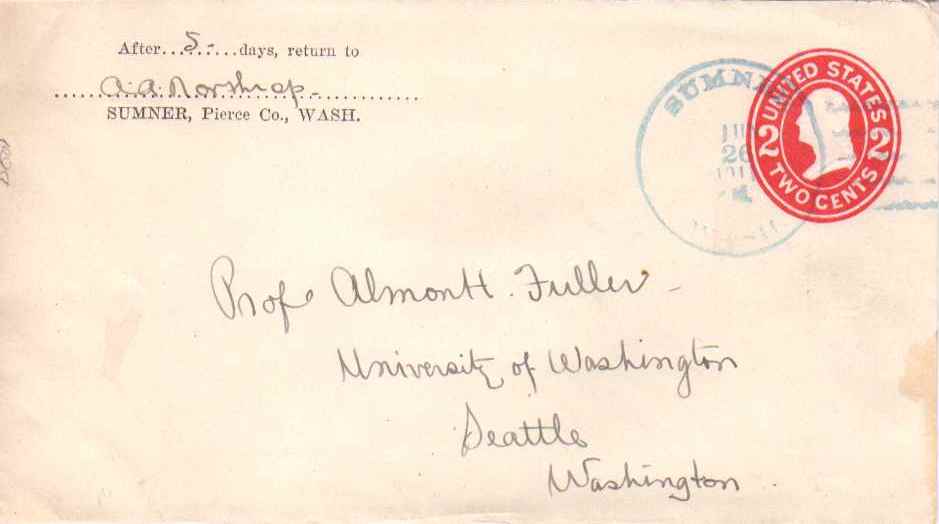 After...5-...days, return to
A.A. Northrop-
SUMNER, Pierce Co., WASH.
SUMNER
26
WASH
UNITED STATES
2 2
TWO CENTS
Prof Almon H. Fuller-
University of Washington
Seattle
Washington.